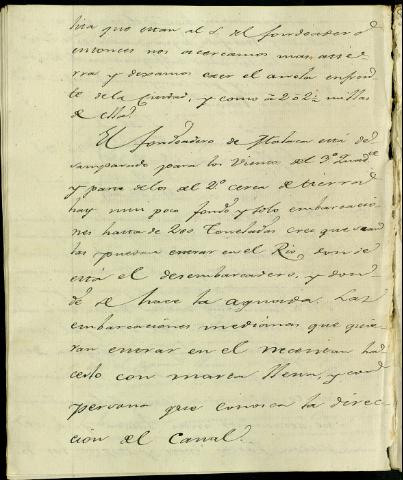 que estan al S. del fondeadero
entonces nos acercamos mas a tie-
rra y dexamos caer el ancla enfren-
te de la Ciudad, y como à 2 ò 2½ millas
de ella.
El fondeadero de Malaca está de-
samparado para los Vientos del 3º Quad.te
y parte de los del 2º cerca de tierra
hay muy poco fondo y solo embarcacio-
nes hasta de 200 Toneladas creo que
las puedan entrar en el Rio donde
está el desembarcadero, y don-
de se hace la aguada. Las
embarcaciones medianas que quie-
ran entrar en el necesitan ha-
cerlo con marea llena, y con
persona que conosca la direc-
cion del Canal.